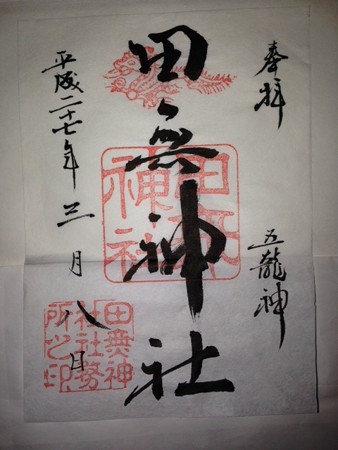 奉拝
五龍神
田無神社
平成二十七年三月八日
田無神社
田無神社社務所之印